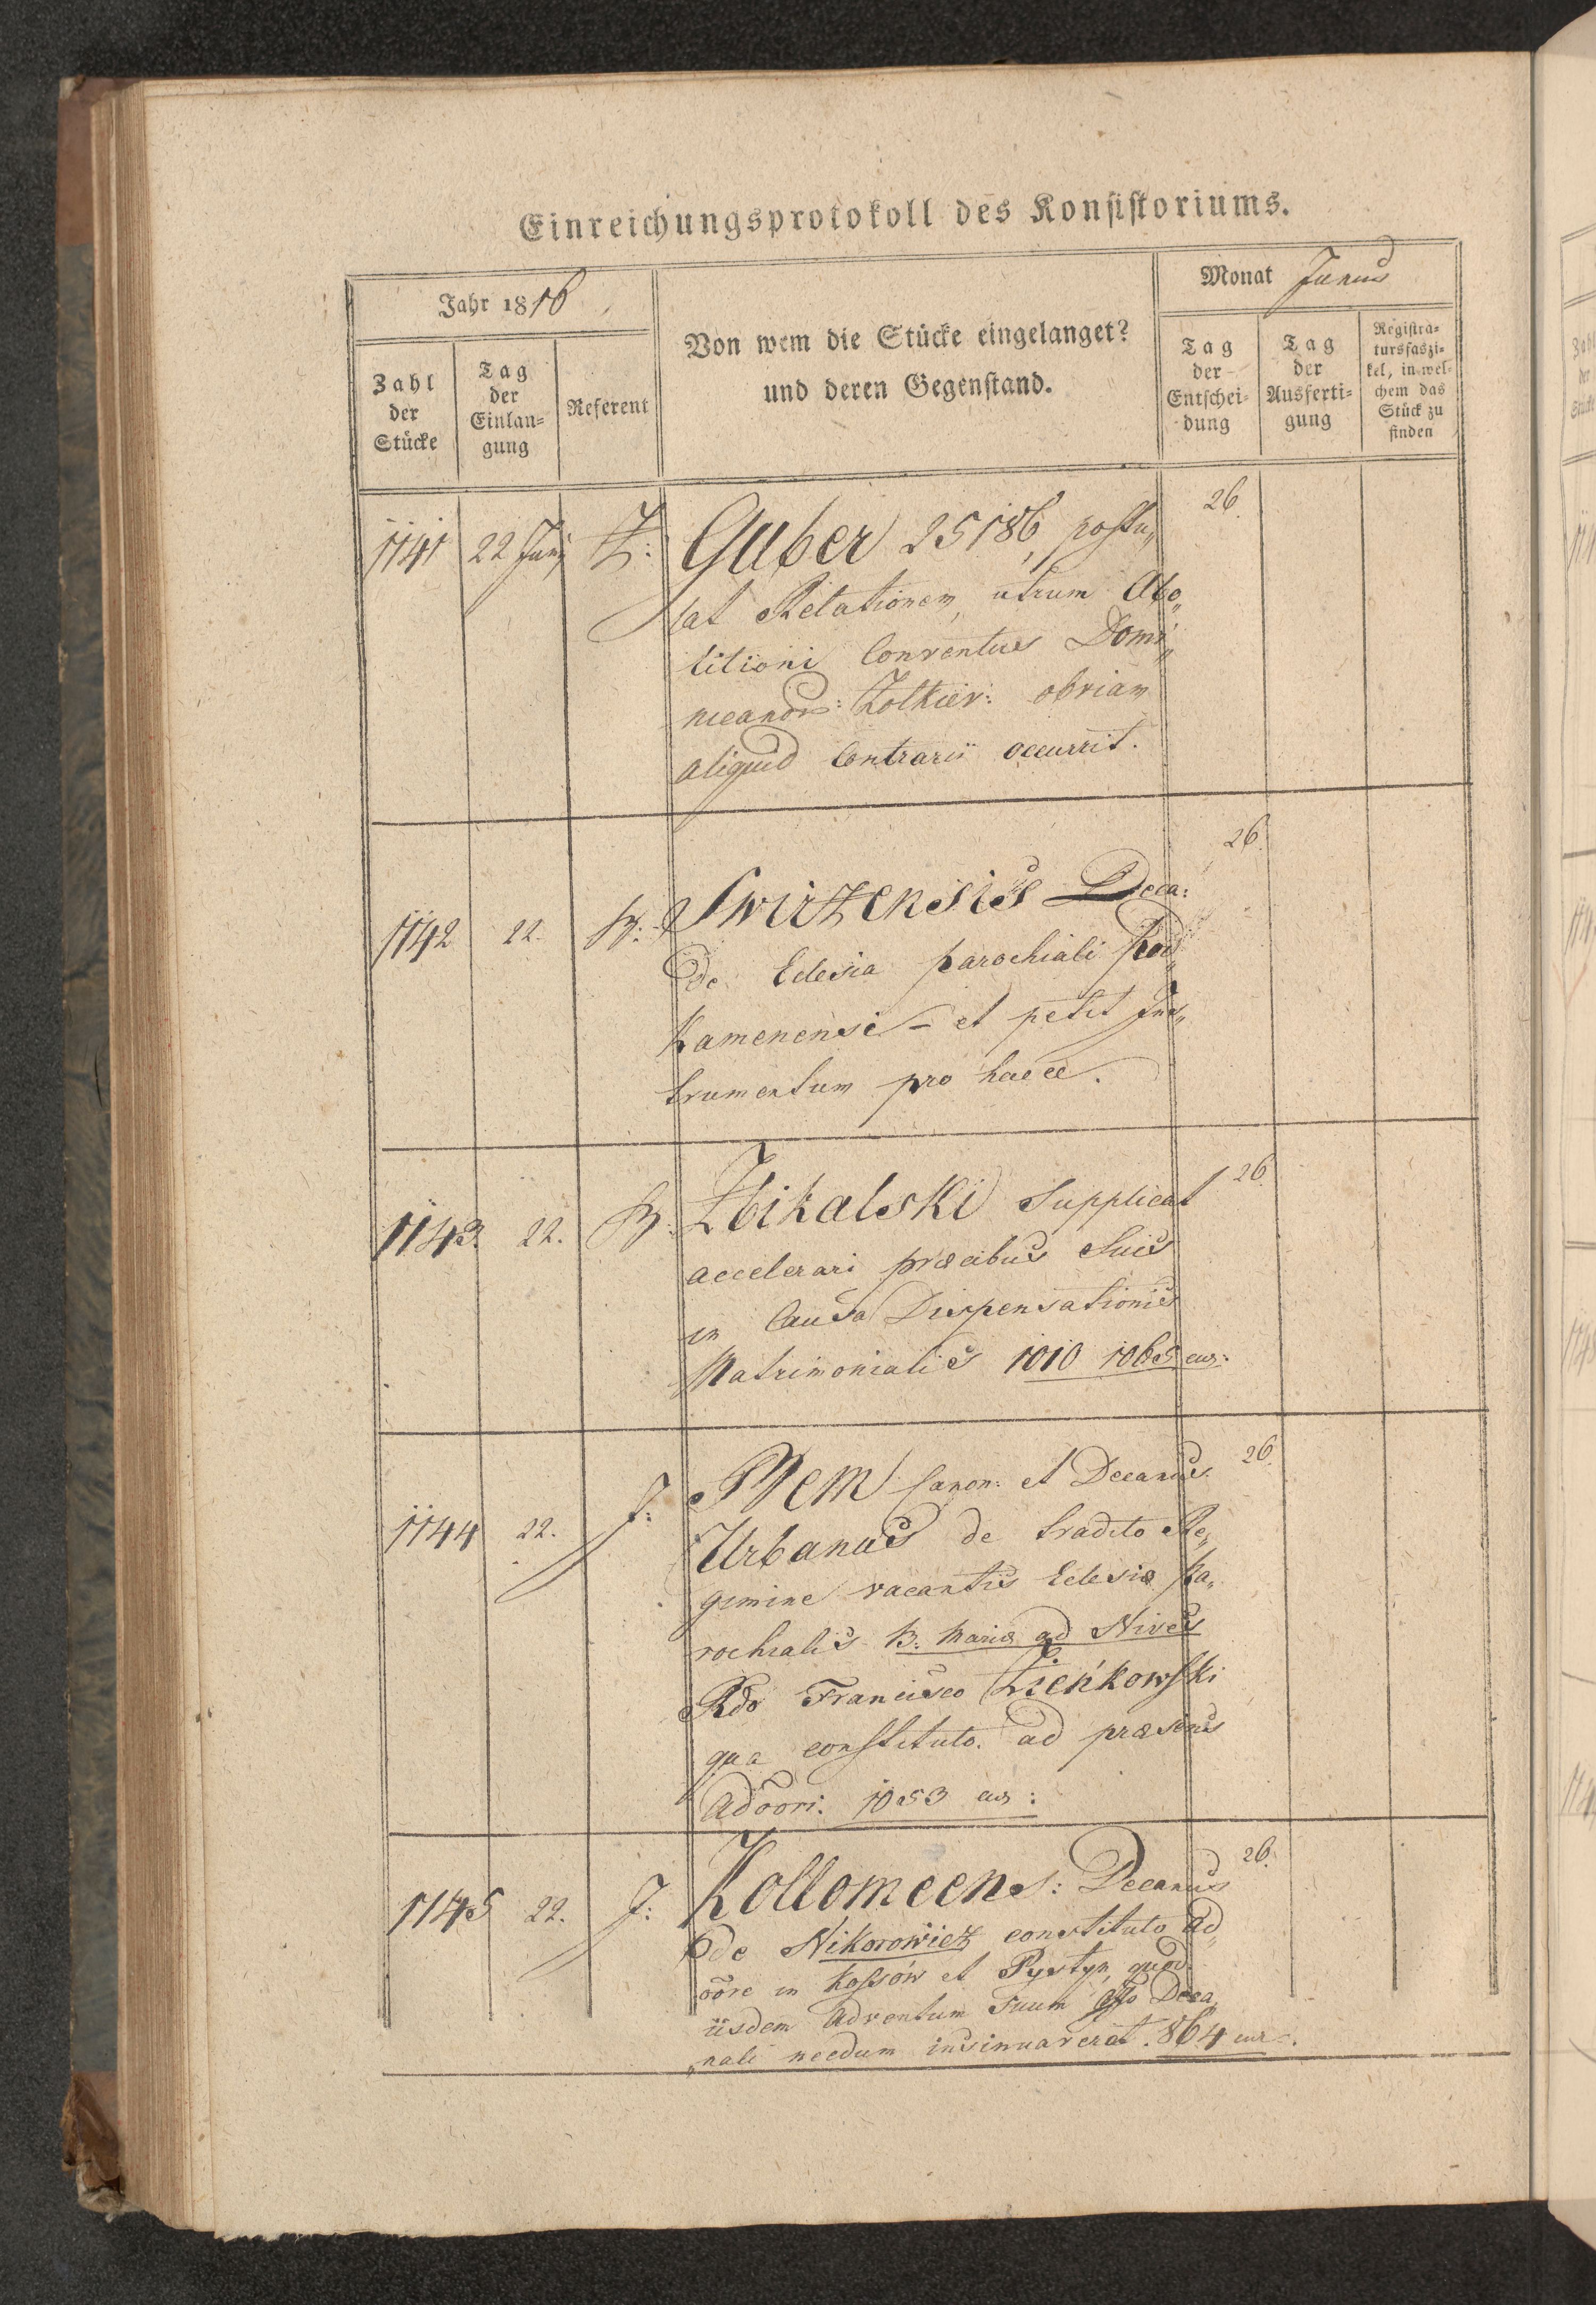 Einreichungsprotokoll des Konsistoriums.
Jahr 1816
Monat Junius
Zahl der Stücke
Tag der Einlan=gung
Referent
Von wem die Stücke eingelanget?
und deren Gegenstand.
Tag der Entschei=dung
Tag der Ausferti=gung
Registra=tursfaszi=kel, in wel=chem das Stück zu finden
1141 22 Junij Z: Guber 25186, postu„ 26.
lat Relationem, utrum Abo„
litioni Conventus Domi„
nicanor: Zolkiev: obviam
aliquid Contrarii occurrit.
1142 22. Swirzensis Deca: 26.
de Eclesia parochiali Pod„
kamenensi – et petit Ins„
trumentum pro haece.
1143. 22. Zbikalski Supplicat 26.
accelerari præcibus Suis
in Causa Dispensationis
Matrimonialis 1010 1065 eus:
1144 22. J: Rem Canon: et Decanus 26.
Urbanus de tradito Re„
gimine vacantis Eclesiæ Pa„
rochialis B. Mariæ ad Nives
Rdo Francisco Zieńkowski
qua constituto ad præsens
Adoori: 1053 eus:
1145 22. J: Kollomeens: Decanus 26.
de Nikorowicz constituto Ad„
oore in Kossów et Pystyn, quod
iisdem Adventum suum Offo Deca„
„nali necdum insinuaverat. 864 eus: